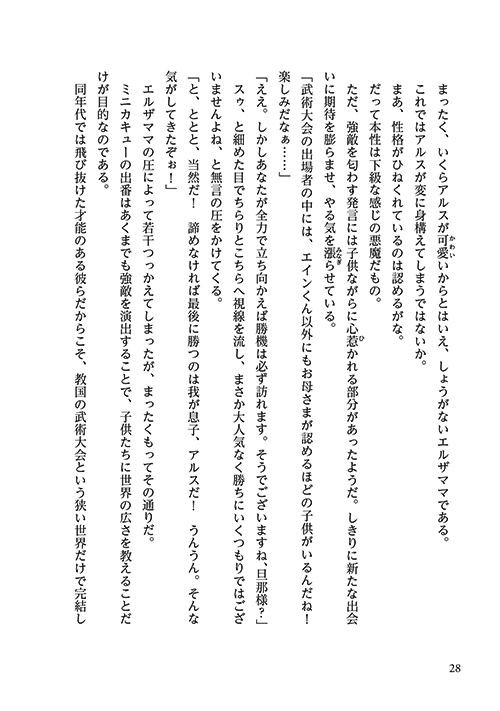 まったく、いくらアルスが可愛いからとはいえ、しょうがないエルザママである。
これではアルスが変に身構えてしまうではないか。
まあ、性格がひねくれているのは認めるがな。
だって本性は下級な感じの悪魔だもの。
ただ、強敵を匂わす発言には子供ながらに心惹かれる部分があったようだ。しきりに新たな出会
いに期待を膨らませ、やる気を漲らせている。
「武術大会の出場者の中には、エインくん以外にもお母さまが認めるほどの子供がいるんだね！
楽しみだなぁ……」
「ええ。しかしあなたが全力で立ち向かえば勝機は必ず訪れます。そうでございますね、旦那様？」
スゥ、と細めた目でちらりとこちらへ視線を流し、まさか大人気なく勝ちにいくつもりではござ
いませんよね、と無言の圧をかけてくる。
「と、ととと、当然だ！　諦めなければ最後に勝つのは我が息子、アルスだ！　うんうん。そんな
気がしてきたぞぉ！」
エルザママの圧によって若干つっかえてしまったが、まったくもってその通りだ。
ミニカキューの出番はあくまでも強敵を演出することで、子供たちに世界の広さを教えることだ
けが目的なのである。
同年代では飛び抜けた才能のある彼らだからこそ、教国の武術大会という狭い世界だけで完結し
28